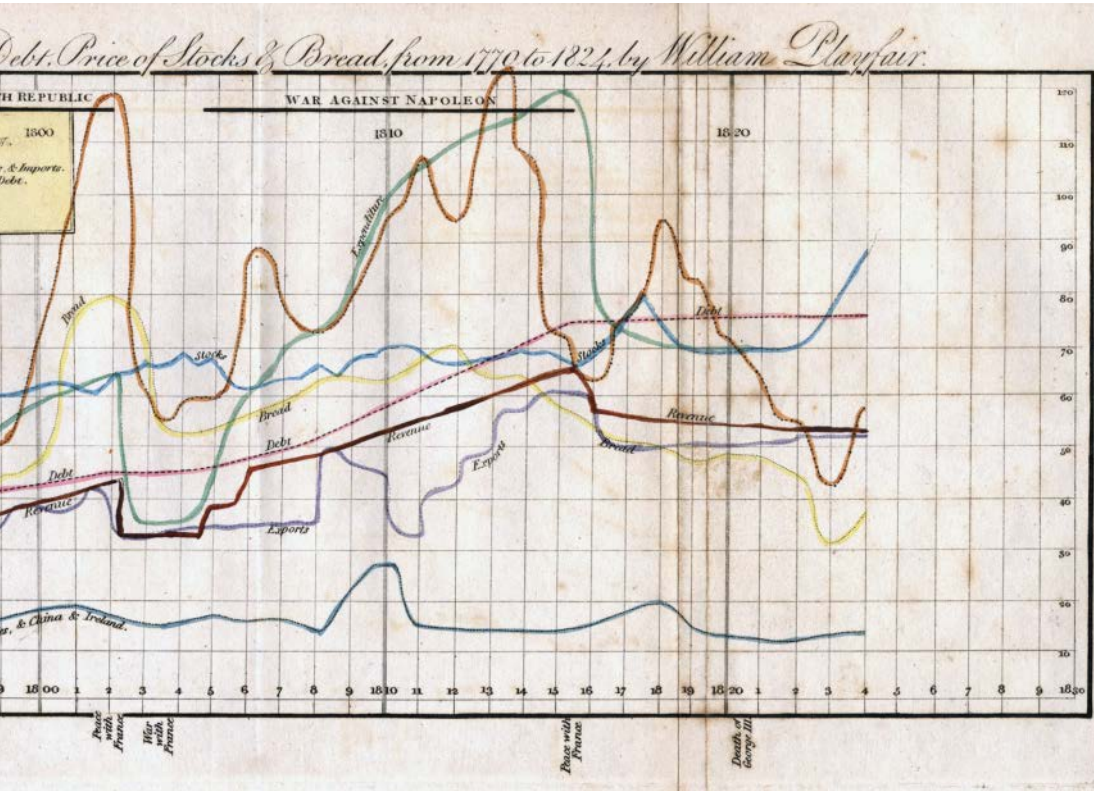 Debt, Price of Stocks & Bread, from 1770 to 1824, by William Playfair.
H REPUBLIC
WAR AGAINST NAPOLEON
1800
1810
1820
& Imports.
Debt.
120
110
100
90
80
70
60
50
40
30
20
10
Expenditure
Bread
Stocks
Bread
Debt
Debt
Revenue
Revenue
Exports
Exports
Stocks
Debt
Revenue
Bread
& China & Ireland.
9 1800 1 2 3 4 5 6 7 8 9 1810 11 12 13 14 15 16 17 18 19 1820 1 2 3 4 5 6 7 8 9 1830
Peace
with
France
War
with
France
Peace with
France
Death of
George III